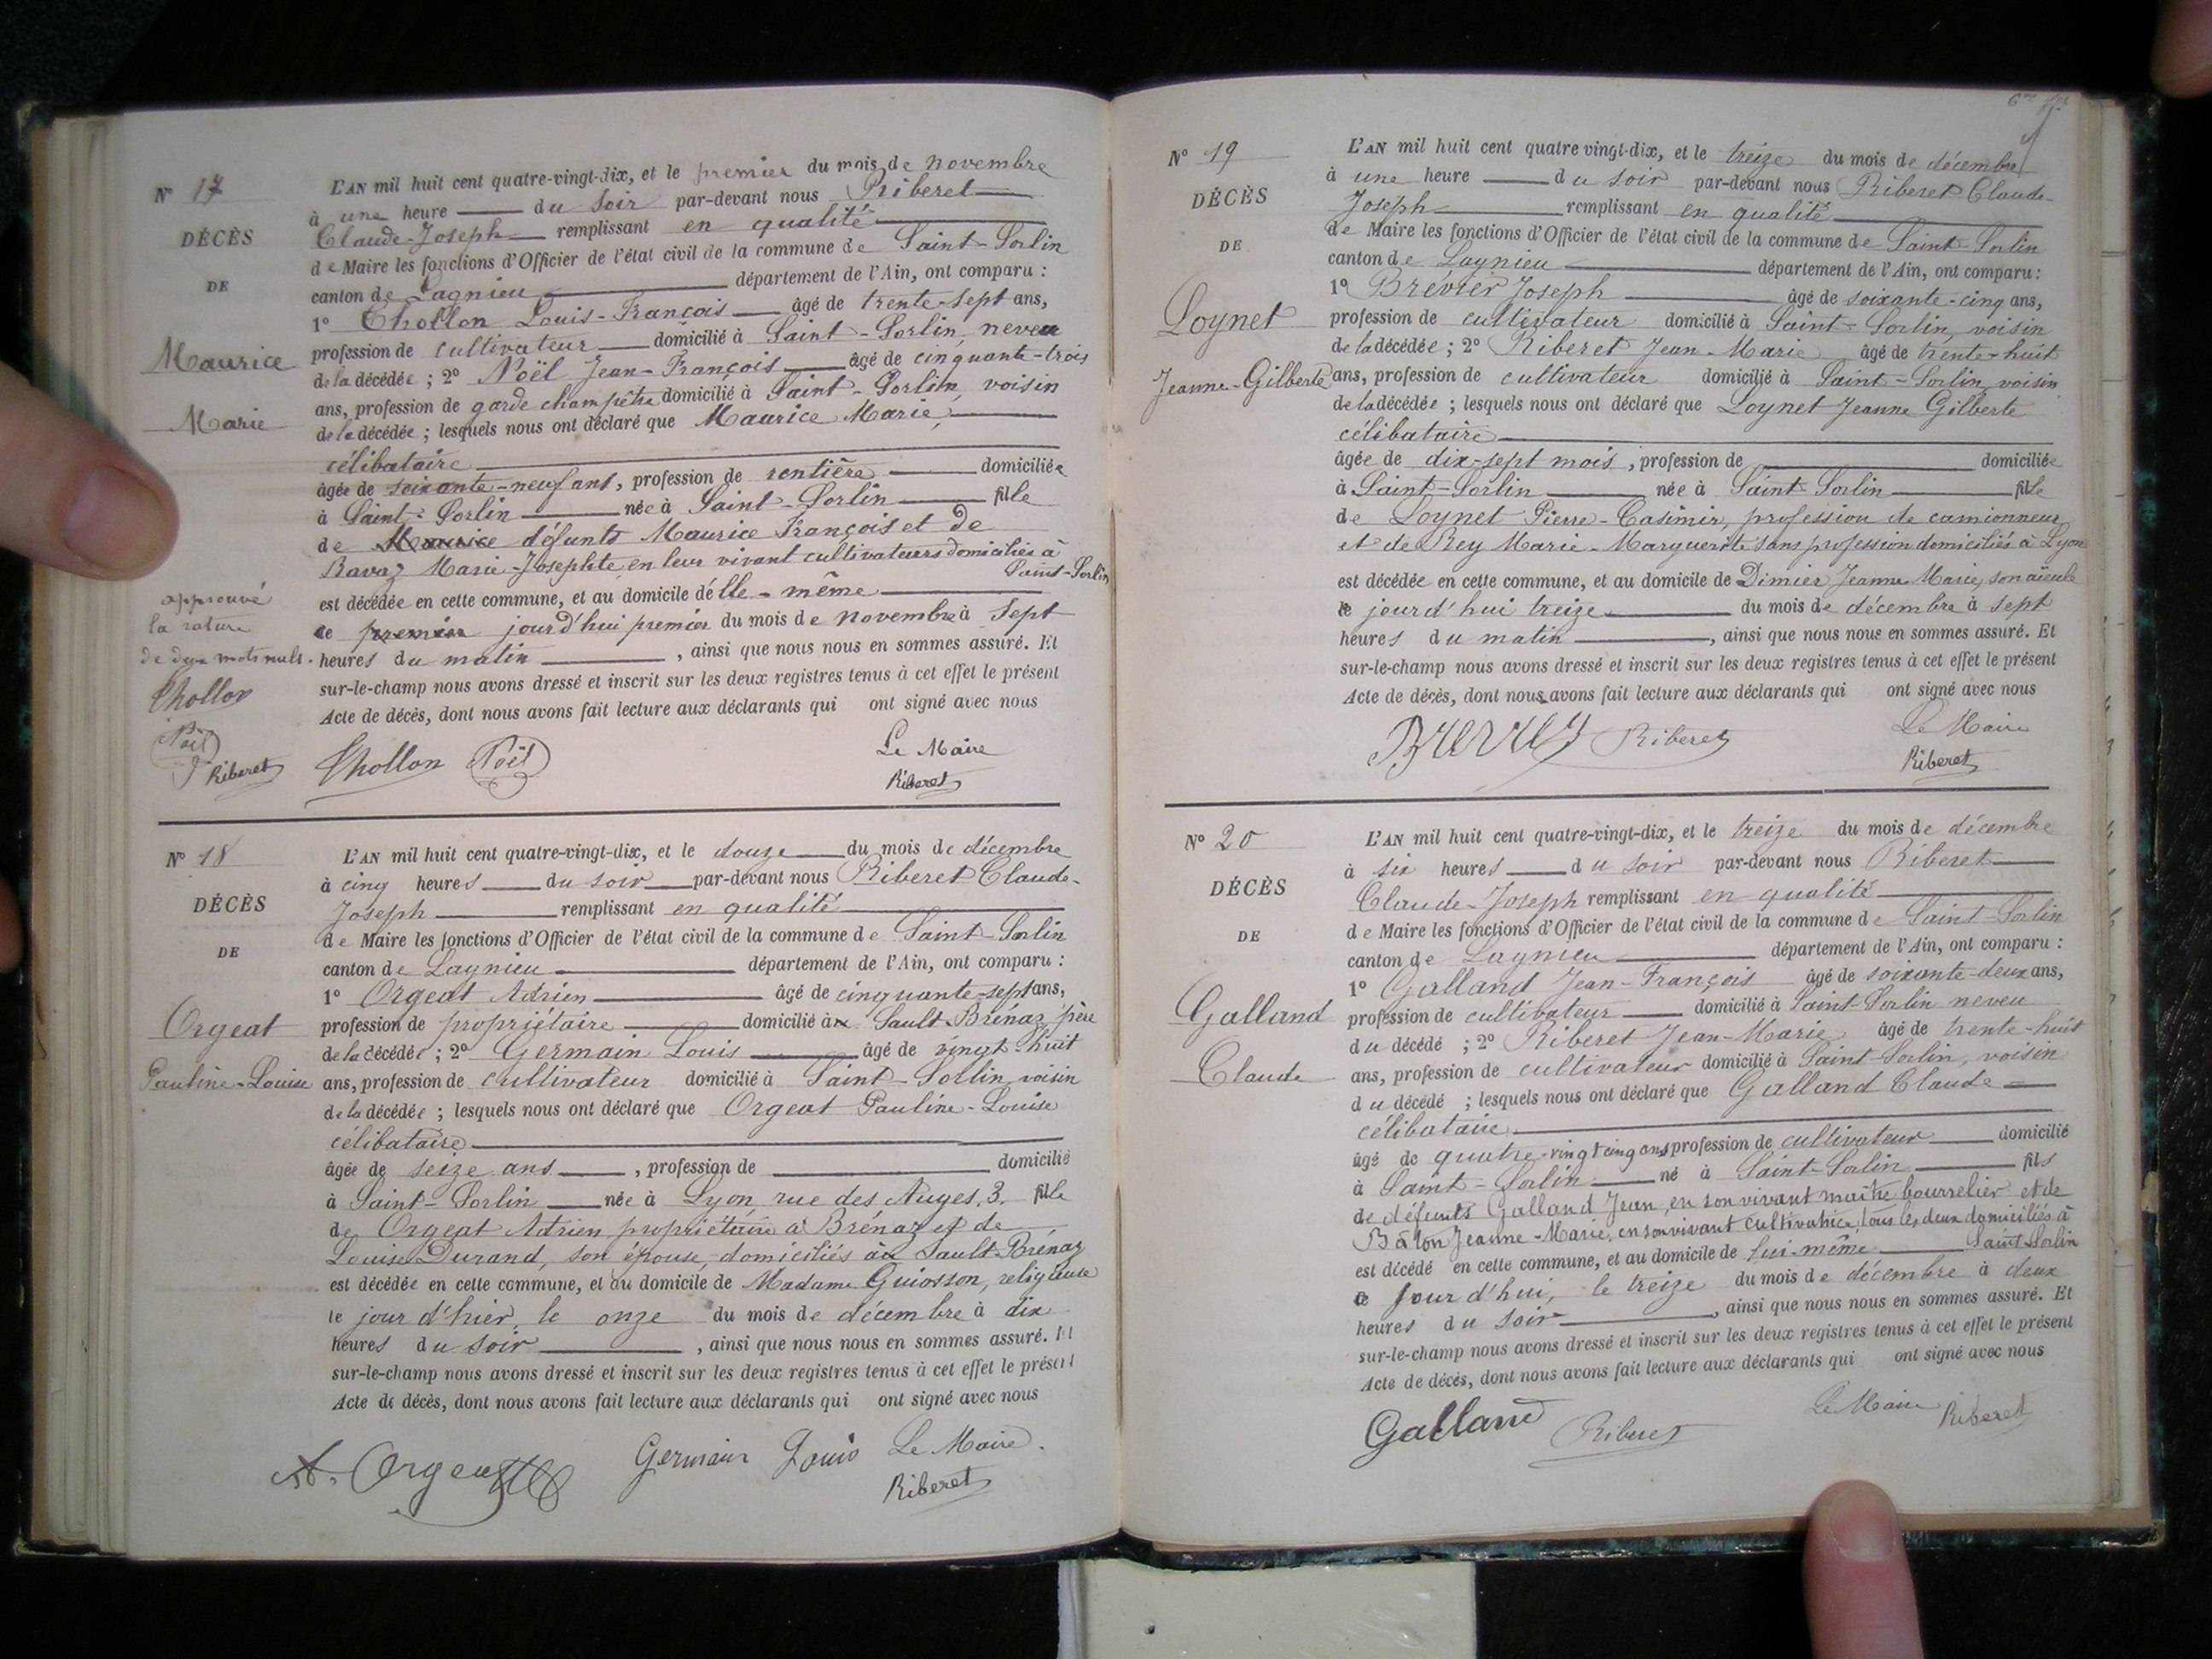 N° 17
DÉCÈS
DE
Maurice
Marie
approuvé
la rature
de deux mots nuls.
Chollon
Noël
Riberet
L'AN mil huit cent quatre-vingt-dix, et le premier du mois de novembre
à une heure du soir par-devant nous Riberet
Claude-Joseph remplissant en qualité
de Maire les fonctions d'Officier de l'état civil de la commune de Saint-Sorlin
canton de Lagnieu département de l'Ain, ont comparu :
1° Chollon Louis-François âgé de trente-sept ans,
profession de cultivateur domicilié à Saint-Sorlin, neveu
de la décédée ; 2° Noël Jean-François âgé de cinquante-trois
ans, profession de garde champêtre domicilié à Saint-Sorlin, voisin
de la décédée ; lesquels nous ont déclaré que Maurice Marie,
célibataire
âgée de soixante-neuf ans, profession de rentière domiciliée
à Saint-Sorlin née à Saint-Sorlin fille
de Maurice défunts Maurice François et de
Ravaz Marie-Josephte en leur vivant cultivateurs domiciliés à
Saint-Sorlin
est décédée en cette commune, et au domicile d'elle-même
ce premier jourd'hui premier du mois de novembre à sept
heures du matin , ainsi que nous nous en sommes assuré. Et
sur-le-champ nous avons dressé et inscrit sur les deux registres tenus à cet effet le présent
Acte de décès, dont nous avons fait lecture aux déclarants qui ont signé avec nous
Chollon Noël Le Maire
Riberet
N° 18
DÉCÈS
DE
Orgeat
Pauline-Louise
L'AN mil huit cent quatre-vingt-dix, et le douze du mois de décembre
à cinq heures du soir par-devant nous Riberet Claude-
Joseph remplissant en qualité
de Maire les fonctions d'Officier de l'état civil de la commune de Saint-Sorlin
canton de Lagnieu département de l'Ain, ont comparu :
1° Orgeat Adrien âgé de cinquante-sept ans,
profession de propriétaire domicilié à Sault-Brénaz père
de la décédée ; 2° Germain Louis âgé de vingt-huit
ans, profession de cultivateur domicilié à Saint-Sorlin voisin
de la décédée ; lesquels nous ont déclaré que Orgeat Pauline-Louise
célibataire
âgée de seize ans , profession de domicilié
à Saint-Sorlin née à Lyon, rue des Auges, 3. fille
de Orgeat Adrien propriétaire à Brénaz et de
Louise Durand, son épouse, domiciliés à Sault-Brénaz
est décédée en cette commune, et au domicile de Madame religieuse
le jour d'hier, le onze du mois de décembre à dix
heures du soir , ainsi que nous nous en sommes assuré. Et
sur-le-champ nous avons dressé et inscrit sur les deux registres tenus à cet effet le présent
Acte de décès, dont nous avons fait lecture aux déclarants qui ont signé avec nous
A. Orgeat Germain Louis Le Maire.
Riberet
N° 19
DÉCÈS
DE
Loynet
Jeanne-Gilberte
L'AN mil huit cent quatre vingt-dix, et le treize du mois de décembre
à une heure du soir par-devant nous Riberet Claude-
Joseph remplissant en qualité
de Maire les fonctions d'Officier de l'état civil de la commune de Saint-Sorlin
canton de Lagnieu département de l'Ain, ont comparu :
1° Brévier Joseph âgé de soixante-cinq ans,
profession de cultivateur domicilié à Saint-Sorlin, voisin
de la décédée ; 2° Riberet Jean-Marie âgé de trente-huit
ans, profession de cultivateur domicilié à Saint-Sorlin, voisin
de la décédée ; lesquels nous ont déclaré que Loynet Jeanne Gilberte
célibataire
âgée de dix-sept mois , profession de domiciliée
à Saint-Sorlin née à Saint-Sorlin fille
de Loynet Pierre-Casimir, profession de camionneur
et de Rey Marie-Marguerite sans profession domiciliés à Lyon
est décédée en cette commune, et au domicile de Dimier Jeanne Marie, son aïeule
ce jourd'hui treize du mois de décembre à sept
heures du matin , ainsi que nous nous en sommes assuré. Et
sur-le-champ nous avons dressé et inscrit sur les deux registres tenus à cet effet le présent
Acte de décès, dont nous avons fait lecture aux déclarants qui ont signé avec nous
Riberet Le Maire
Riberet
N° 20
DÉCÈS
DE
Galland
Claude
L'AN mil huit cent quatre-vingt-dix, et le treize du mois de décembre
à six heures du soir par-devant nous Riberet
Claude-Joseph remplissant en qualité
de Maire les fonctions d'Officier de l'état civil de la commune de Saint-Sorlin
canton de Lagnieu département de l'Ain, ont comparu :
1° Galland Jean-François âgé de soixante-deux ans,
profession de cultivateur domicilié à Saint-Sorlin neveu
du décédé ; 2° Riberet Jean-Marie âgé de trente-huit
ans, profession de cultivateur domicilié à Saint-Sorlin, voisin
du décédé ; lesquels nous ont déclaré que Galland Claude
célibataire
âgé de quatre-vingt cinq ans profession de cultivateur domicilié
à Saint-Sorlin né à Saint-Sorlin fils
de défunts Galland Jean, en son vivant maître bourrelier et de
Bâton Jeanne-Marie, en son vivant cultivatrice, tous les deux domiciliés à
Saint Sorlin
est décédé en cette commune, et au domicile de lui-même
ce jour d'hui, le treize du mois de décembre à deux
heures du soir , ainsi que nous nous en sommes assuré. Et
sur-le-champ nous avons dressé et inscrit sur les deux registres tenus à cet effet le présent
Acte de décès, dont nous avons fait lecture aux déclarants qui ont signé avec nous
Galland Riberet Le Maire Riberet